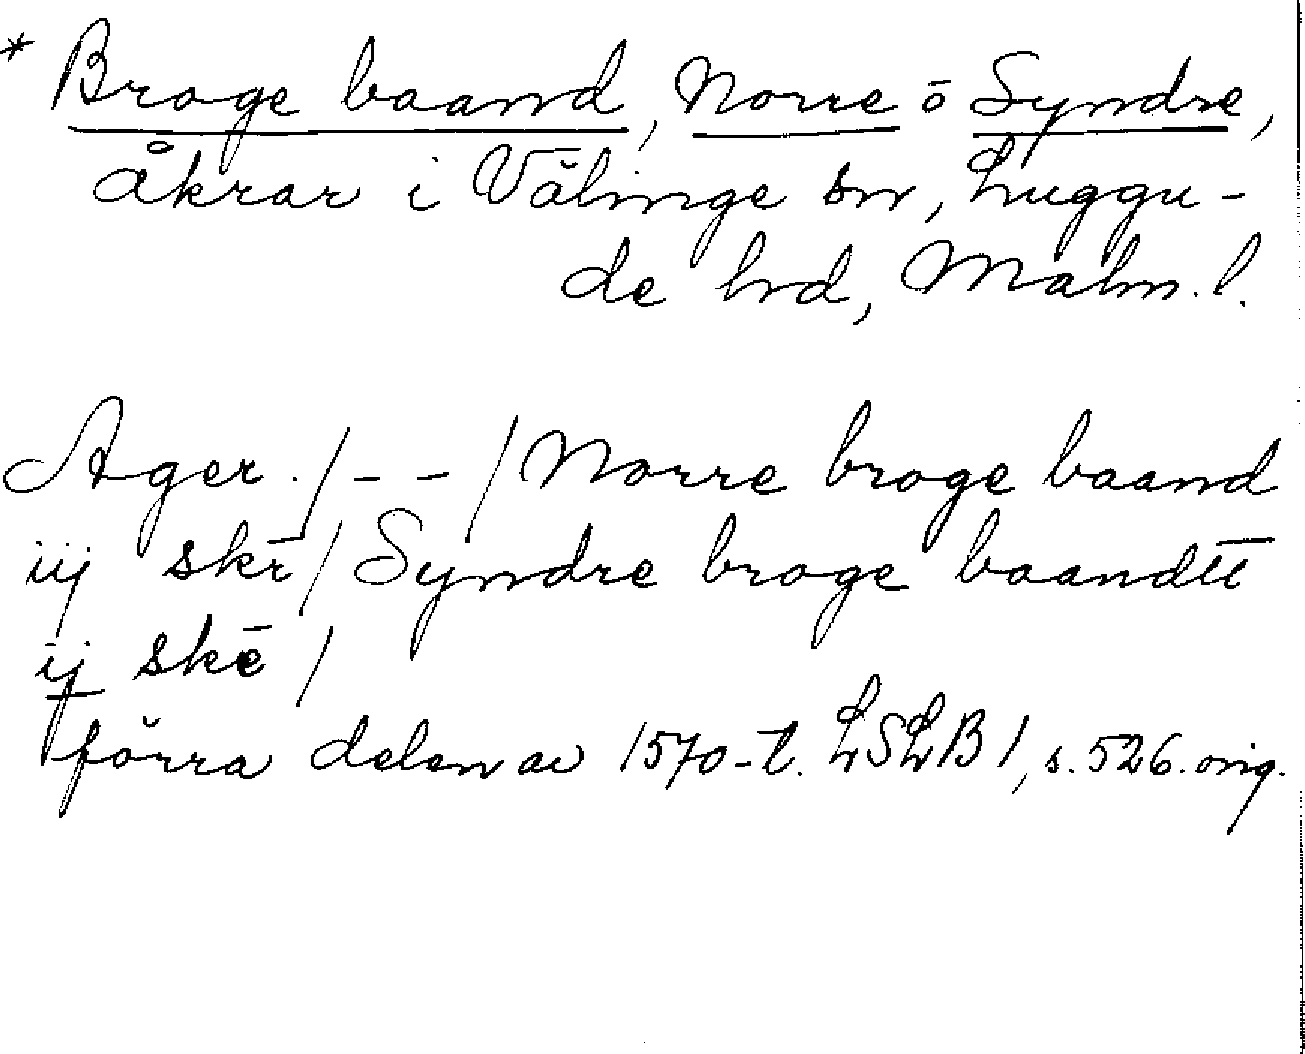 * Broge baand, Norre o Syndre,
åkrar i Välinge sn, Luggu-
de hrd, Malm. l.
Ager. /- - /Norre broge baand
iij skr̄/Syndre broge baandtt
ij skē/
förra delen av 1570-t. LSLB 1, s. 526. orig.